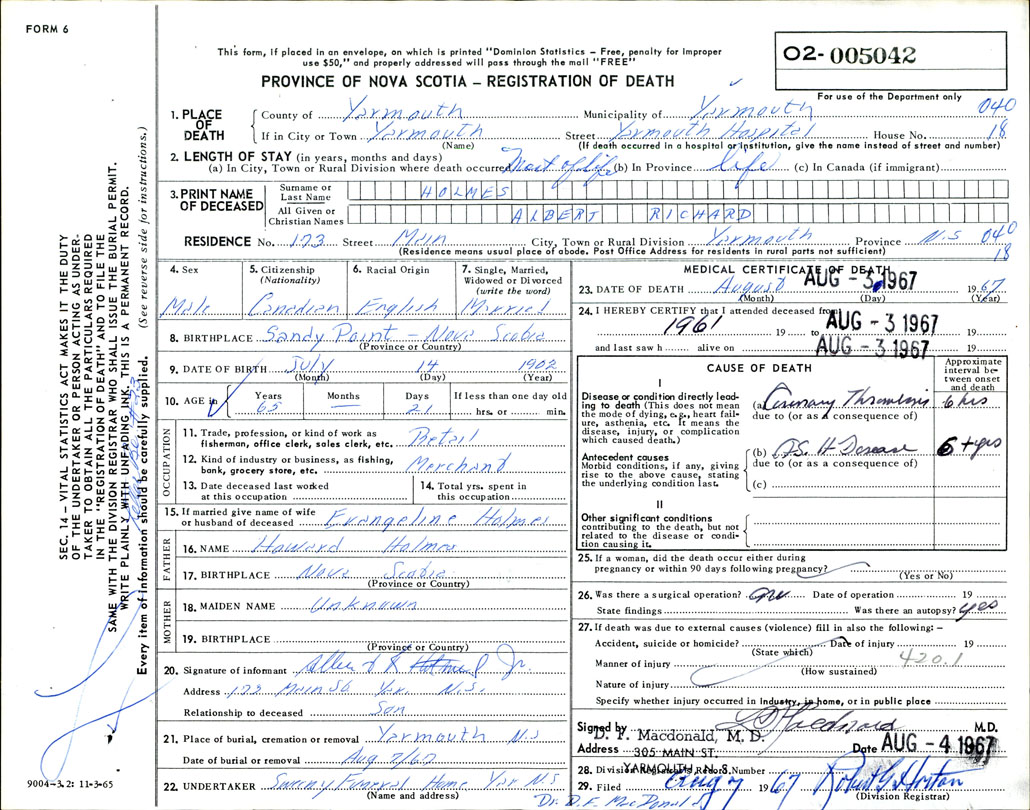 FORM 6
This form, if placed in an envelope, on which is printed "Dominion Statistics – Free, penalty for improper
use $50," and properly addressed will pass through the mail "FREE"
O2- 005042
For use of the Department only
PROVINCE OF NOVA SCOTIA – REGISTRATION OF DEATH
1. PLACE OF DEATH County of Yarmouth Municipality of Yarmouth 040
If in City or Town Yarmouth Street Yarmouth Hospital House No. 18
(Name) (If death occurred in a hospital or institution, give the name instead of street and number)
2. LENGTH OF STAY (in years, months and days)
(a) In City, Town or Rural Division where death occurred Most of life (b) In Province life (c) In Canada (if immigrant)
3. PRINT NAME OF DECEASED
Surname or Last Name HOLMES
All Given or Christian Names ALBERT RICHARD
RESIDENCE No. 173 Street Main City, Town or Rural Division Yarmouth Province N.S 040
(Residence means usual place of abode. Post Office Address for residents in rural parts not sufficient) 18
4. Sex
Male
5. Citizenship
(Nationality)
Canadian
6. Racial Origin
English
7. Single, Married,
Widowed or Divorced
(write the word)
Married
8. BIRTHPLACE Sandy Point – Nova Scotia
(Province or Country)
9. DATE OF BIRTH July 14 1902
(Month) (Day) (Year)
10. AGE in Years Months Days If less than one day old
65 — 21 hrs. or min.
OCCUPATION
11. Trade, profession, or kind of work as
fisherman, office clerk, sales clerk, etc. Retail
12. Kind of industry or business, as fishing,
bank, grocery store, etc. Merchant
13. Date deceased last worked
at this occupation
14. Total yrs. spent in
this occupation
15. If married give name of wife
or husband of deceased Evangeline Holmes
FATHER
16. NAME Howard Holmes
17. BIRTHPLACE Nova Scotia
(Province or Country)
MOTHER
18. MAIDEN NAME Unknown
19. BIRTHPLACE
(Province or Country)
20. Signature of informant Jr.
Address Main St. Yar. N.S.
Relationship to deceased Son
21. Place of burial, cremation or removal Yarmouth N.S
Date of burial or removal Aug 7/67
22. UNDERTAKER Sweeny Funeral Home Yar N.S.
(Name and address)
MEDICAL CERTIFICATE OF DEATH
23. DATE OF DEATH August AUG - 3 1967 1967
(Month) (Day) (Year)
24. I HEREBY CERTIFY that I attended deceased from
1961 19 to AUG - 3 1967 19
and last saw h alive on AUG - 3 1967 19
CAUSE OF DEATH
Approximate interval between onset and death
I
Disease or condition directly leading to death (This does not
mean the mode of dying, e.g., heart failure, asthenia, etc. It means the
disease, injury, or complication
which caused death.)
(a) Coronary Thrombosis 6 hrs
due to (or as a consequence of)
Antecedent causes
Morbid conditions, if any, giving
rise to the above cause, stating
the underlying condition last.
(b) A.S. H Disease 6 + yrs
due to (or as a consequence of)
(c)
II
Other significant conditions
contributing to the death, but not
related to the disease or condition causing it.
25. If a woman, did the death occur either during
pregnancy or within 90 days following pregnancy?
(Yes or No)
26. Was there a surgical operation? no Date of operation 19
State findings Was there an autopsy? yes
27. If death was due to external causes (violence) fill in also the following: –
Accident, suicide or homicide? Date of injury 19
(State which)
Manner of injury 420.1
(How sustained)
Nature of injury
Specify whether injury occurred in industry, in home, or in public place
Signed by M.D.
D. F. Macdonald, M. D.
Address 305 MAIN ST. Date AUG - 4 1967
YARMOUTH, N. S.
28. Division Registrar's Record Number
29. Filed Aug 7 1967 Robert G Horton
(Division Registrar)
Dr. D.F. MacDonald
SEC. 14 – VITAL STATISTICS ACT MAKES IT THE DUTY
OF THE UNDERTAKER OR PERSON ACTING AS UNDERTAKER TO OBTAIN ALL THE PARTICULARS REQUIRED
IN THE "REGISTRATION OF DEATH" AND TO FILE THE
SAME WITH THE DIVISION REGISTRAR WHO SHALL ISSUE THE BURIAL PERMIT.
WRITE PLAINLY WITH UNFADING INK. THIS IS A PERMANENT RECORD.
Every item of information should be carefully supplied. (See reverse side for instructions.)
9004-3.2: 11-3-65